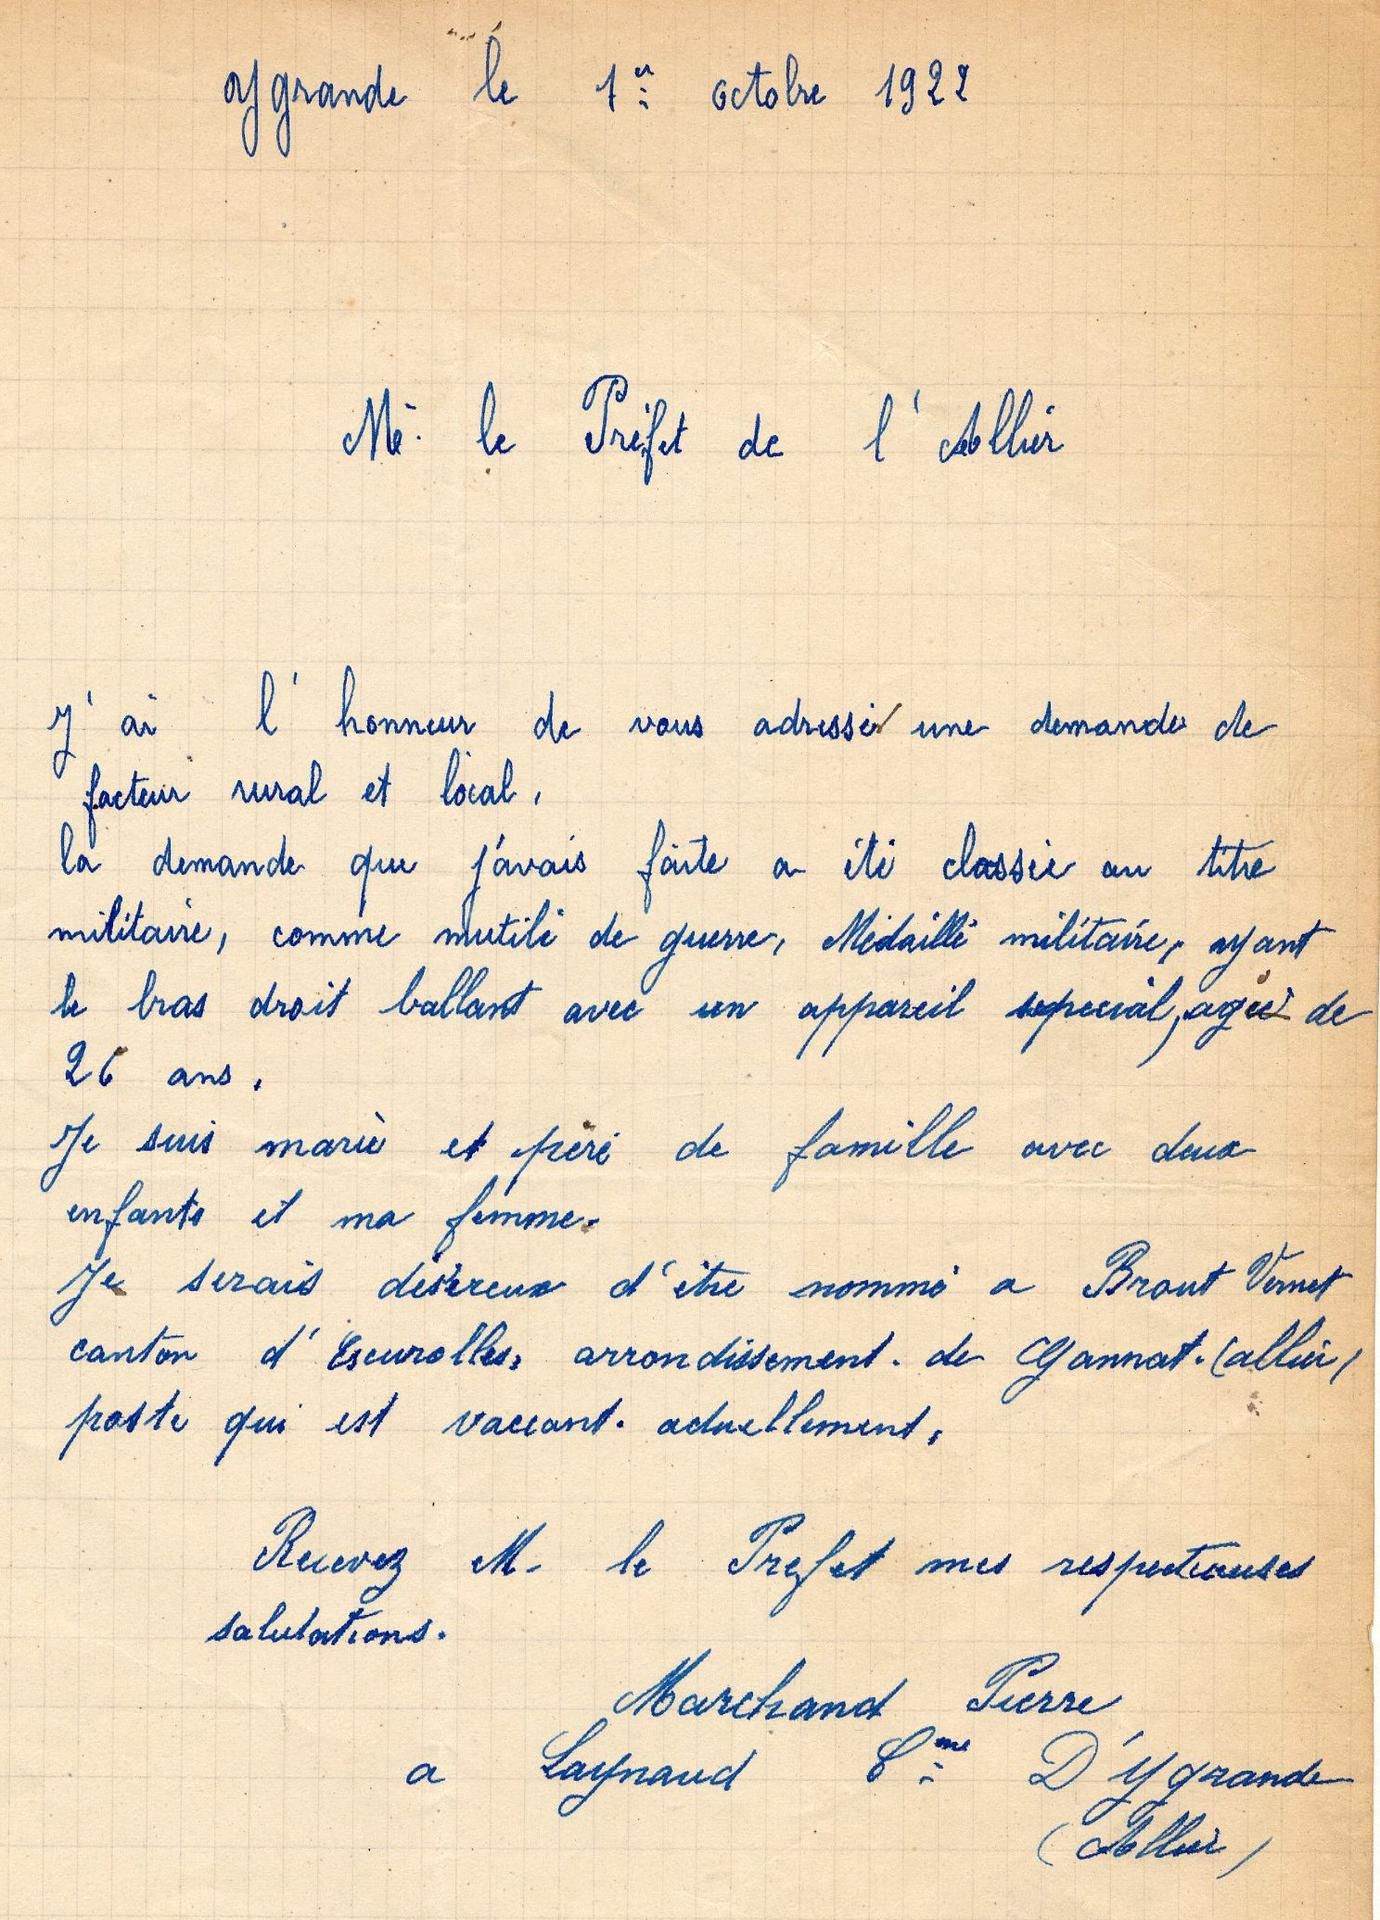 Ygrande le 1er octobre 1922
Mr. le Préfet de l'Allier
J'ai l'honneur de vous adresser une demande de
facteur rural et local.
la demande que j'avais faite a été classée au titre
militaire, comme mutilé de guerre, Médaillé militaire, ayant
le bras droit ballant avec un appareil special, agée de
26 ans.
Je suis marié et père de famille avec deux
enfants et ma femme.
Je serais désireux d'être nommé a Brout Vernet
canton d'Escurolles, arrondissement. de Gannat. (allier)
poste qui est vaccant. actuellement.
Recevez M. le Prefet mes respectueuses
salutations.
Marchand Pierre
a Laynaud Cme D'Ygrande
(Allier)